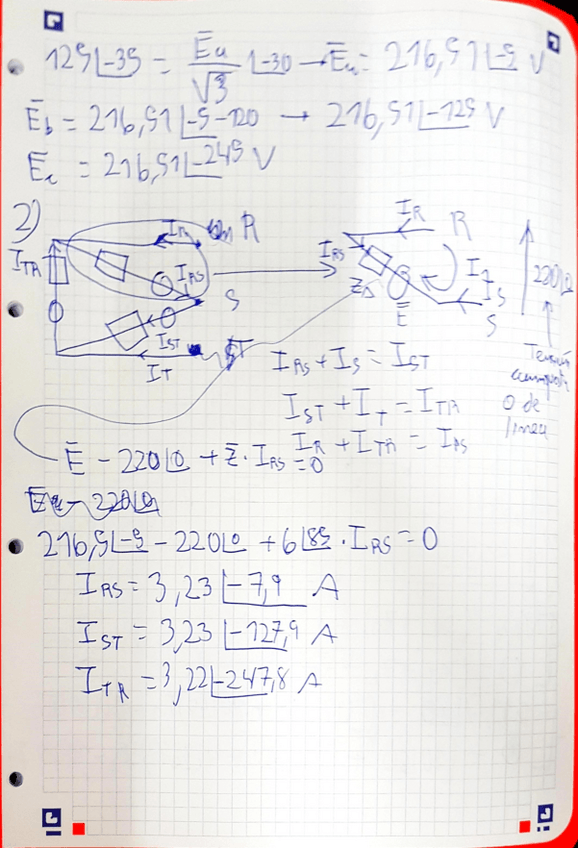 125∠-35 = Ēu/√3 ∠-30 → Ēu = 216,51∠-5 V
Ēb = 216,51∠-5-120 → 216,51∠-125 V
Ēc = 216,51∠-245 V
2)
I_R R
I_TR
I_RS
S
I_ST
I_T
I_R R
I_RS
Z_Δ
Ē
I_S
S
220∠0
Tensión
compuesta
o de
línea
I_RS + I_S = I_ST
I_ST + I_T = I_TR
I_R + I_TR = I_RS
Ē - 220∠0 + Z̄ · I_RS = 0
216,5∠-5 - 220∠0 + 6∠85 · I_RS = 0
I_RS = 3,23∠-7,9 A
I_ST = 3,23∠-127,9 A
I_TR = 3,22∠-247,8 A